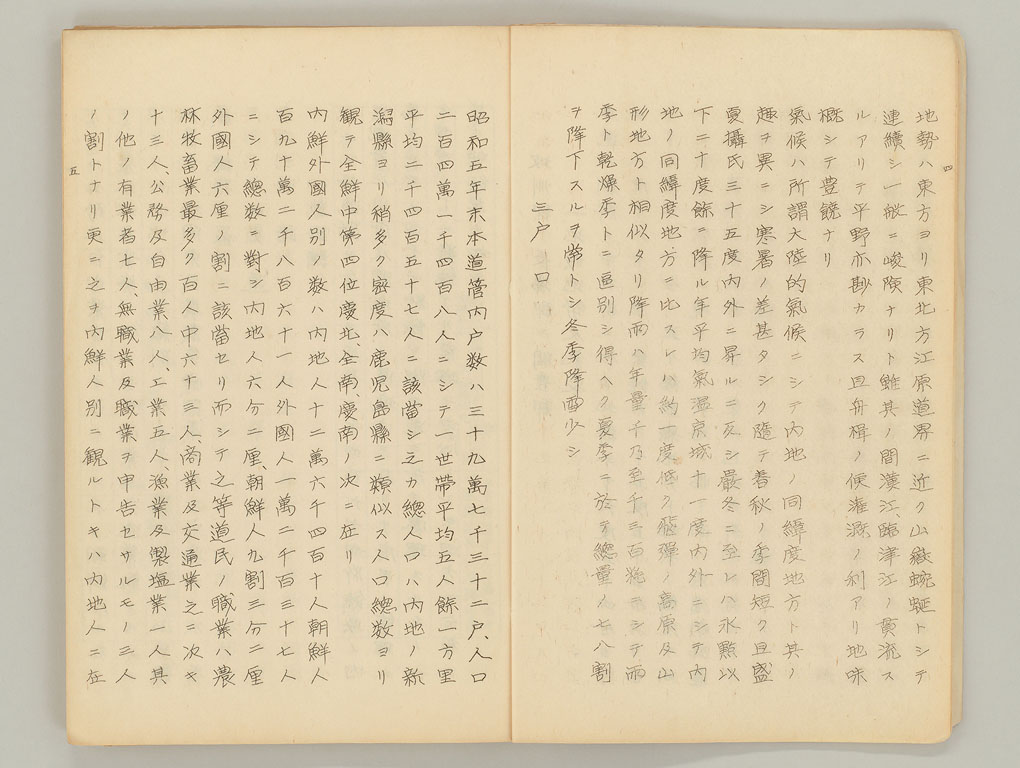 四
地勢ハ東方ヨリ東北方江原道界ニ近ク山嶽蜿蜒トシテ
連續シ一般ニ峻険ナリト雖其ノ間漢江、臨津江ノ貫流ス
ルアリテ平野亦尠カラス且舟楫ノ便灌漑ノ利アリ地味
概シテ豊饒ナリ
氣候ハ所謂大陸的氣候ニシテ内地ノ同緯度地方ト其ノ
趣ヲ異ニシ寒暑ノ差甚タシク隨テ春秋ノ季間短ク且盛
夏攝氏三十五度内外ニ昇ルニ反シ嚴冬ニ至レハ氷點以
下二十度餘ニ降ル年平均氣溫京城十一度内外ニシテ内
地ノ同緯度地方ニ比スレハ約一度低ク飛彈ノ高原及山
形地方ト相似タリ降雨ハ年量千乃至千三百粍ニシテ雨
季ト乾燥季トニ區別シ得ヘク夏季ニ於テ總量ノ七八割
ヲ降下スルヲ常トシ冬季降雪少シ
三戸口
昭和五年末本道管内戸数ハ三十九萬七千三十二戸、人口
二百四萬一千四百八人ニシテ一世帶平均五人餘一方里
平均二千四百五十七人ニ該當シ之カ總人口ハ内地ノ新
潟縣ヨリ稍多ク密度ハ鹿児島縣ニ類似ス人口總数ヨリ
観テ全鮮中第四位慶北、全南、慶南ノ次ニ在リ
内鮮外國人別ノ数ハ内地人十二萬六千四百十人朝鮮人
百九十萬二千八百六十一人外國人一萬二千百三十七人
ニシテ總数ニ對シ内地人六分二厘、朝鮮人九割三分二厘
外國人六厘ノ割ニ該當セリ而シテ之等道民ノ職業ハ農
林牧畜業最多ク百人中六十三人、商業及交通業之ニ次キ
十三人、公務及自由業八人、工業五人、漁業及製塩業一人其
ノ他ノ有業者七人、無職業及職業ヲ申告セサルモノ三人
ノ割トナリ更ニ之ヲ内鮮人別ニ観ルトキハ内地人ニ在
五